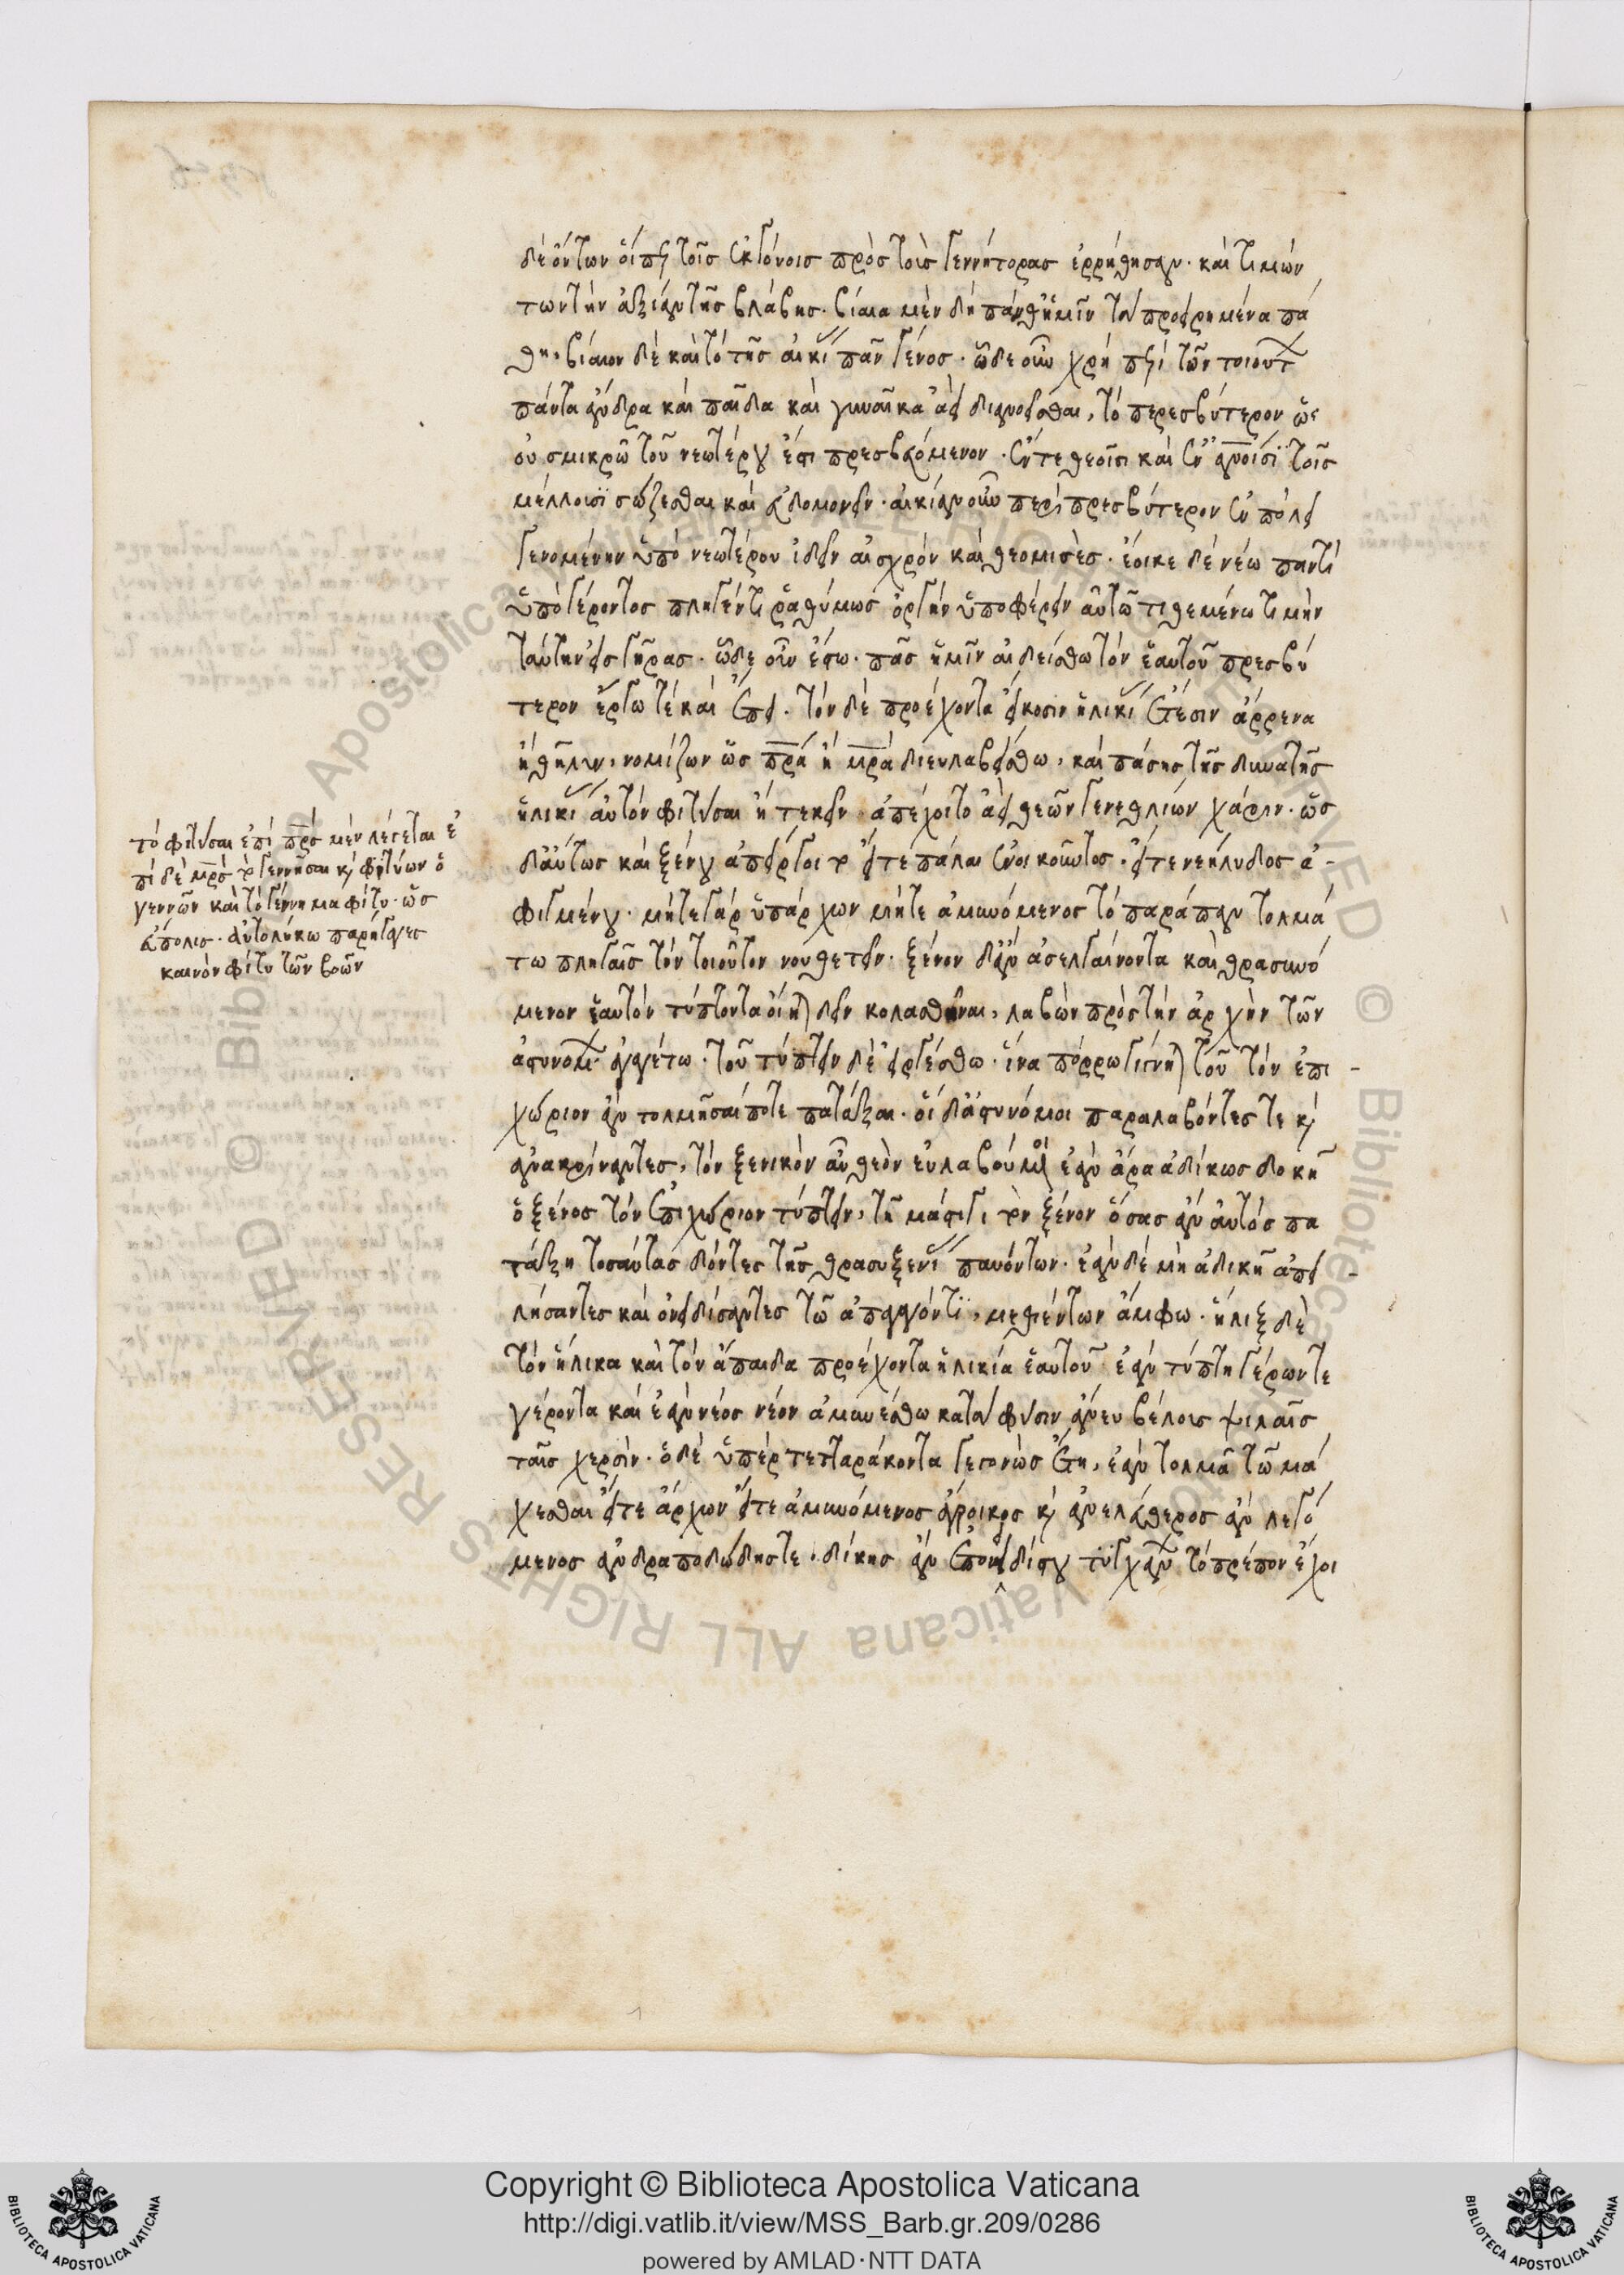 δὲ ὄντων οἳ περὶ τοῖς ἐκγόνοις πρὸς τοὺς γεννήτορας ἐρρήθησαν. καὶ τιμών
των τὴν ἀξίαν τῆς βλάβης. βίαια μὲν δὴ πάνθ' ἡμῖν τὰ προειρημένα πά
θη, βίαιον δὲ καὶ τὸ τῆς αἰκί παν γένος. ὧδε οὖν χρὴ περὶ τῶν τοιούτ
πάντα ἄνδρα καὶ παῖδα καὶ γυναῖκα ἀεὶ διανοεῖσθαι, τὸ πρεσβύτερον ὡς
οὐ σμικρῶ τοῦ νεωτέρου ἐστὶ πρεσβευόμενον. ἔν τε θεοῖσι καὶ ἐν ἀνοῖσϊ τοῖς
μέλλουσϊ σώζεσθαι καὶ εὐδαιμονεῖν. αἰκίαν οὖν περὶ πρεσβύτερον ἐν πόλει
γενομένην ὑπὸ νεωτέρου ἰδεῖν αἰσχρὸν καὶ θεομισὲς. ἔοικε δὲ νέω παντὶ
ὑπὸ γέροντος πληγέντι ῥαθύμως ὀργὴν ὑποφέρειν αὑτῶ τιθεμένω τιμὴν
ταύτην εἰς γῆρας. ὧδε οὖν ἔστω. πᾶς ἡμῖν αἰδείσθω τὸν ἑαυτοῦ πρεσβύ
τερον ἔργω τὲ καὶ ἔπει. τὸν δὲ προέχοντα εἴκοσιν ἡλικί ἔτεσιν ἄρρενα
ἢ θῆλυν, νομίζων ὡς πρα ἢ μρα διευλαβείσθω, καὶ πάσης τῆς δυνατῆς
ἡλικί αὐτὸν φιτῦσαι ἢ τεκεῖν ἀπέχοιτο ἀεὶ θεῶν γενεθλίων χάριν. ὡς
δ' αὕτως καὶ ξένου ἀπείργοιτο εἴτε πάλαι ἐνοικοῦντος. εἴτε νεήλυδος ἀ-
φιγμένου. μήτε γὰρ ὑπάρχων μήτε ἀμυνόμενος τὸ παράπαν τολμά
τω πληγαῖς τὸν τοιοῦτον νουθετεῖν. ξένον δ' ἂν ἀσελγαίνοντα καὶ θρασυνό
μενον ἑαυτὸν τύπτοντα οἴηται δεῖν κολασθῆναι, λαβὼν πρὸς τὴν ἀρχὴν τῶν
ἀστυνόμ ἀγέτω. τοῦ τύπτειν δὲ εἰργέσθω. ἵνα πόρρω γίγνηται τοῦ τὸν ἐπι-
χώριον ἂν τολμῆσαί ποτε πατάξαι. οἱ δ' ἀστυνόμοι παραλαβόντες τε καὶ
ἀνακρίναντες, τὸν ξενικὸν αὖ θεὸν εὐλαβούμενοι ἐὰν ἄρα ἀδίκως δοκῆ
ὁ ξένος τὸν ἐπιχώριον τύπτειν, τῆ μάστιγι τὸν ξένον ὅσας ἂν αὐτὸς πα
τάξη τοσαύτας δόντες τῆς θρασυξενί παυόντων. ἐὰν δὲ μὴ ἀδικῆ ἀπει-
λήσαντες καὶ ὀνειδίσαντες τῶ ἀπαγαγόντϊ, μεθιέντων ἄμφω. ἧλιξ δὲ
τὸν ἥλικα καὶ τὸν ἄπαιδα προέχοντα ἡλικία ἑαυτοῦ ἐὰν τύπτη γέρων τε
γέροντα καὶ ἐὰν νέος νέον ἀμυνέσθω κατὰ φύσιν ἄνευ βέλους ψιλαῖς
ταῖς χερσὶν. ὁ δὲ ὑπὲρ τετταράκοντα γεγονὼς ἔτη, ἐὰν τολμᾶ τῶ μά
χεσθαι εἴτε ἄρχων εἴτε ἀμυνόμενος ἄγροικος καὶ ἀνελεύθερος ἂν λεγό
μενος ἀνδραποδώδης τε. δίκης ἂν ἐπονειδίστου τυγχάνων τὸ πρέπον ἔχοι
τὸ φιτῦσαι ἐπὶ πρς μὲν λέγεται ἐ
πὶ δὲ μρς τὸ γεννῆσαι καὶ φιτύων ὁ
γεννῶν καὶ τὸ γέννημα φίτυ. ὡς
εὔπολις. αὐτολύκω
καινὸν φίτυ τῶν βοῶν
Copyright © Biblioteca Apostolica Vaticana
http://digi.vatlib.it/view/MSS_Barb.gr.209/0286
powered by AMLAD·NTT DATA
BIBLIOTECA APOSTOLICA VATICANA
BIBLIOTECA APOSTOLICA VATICANA